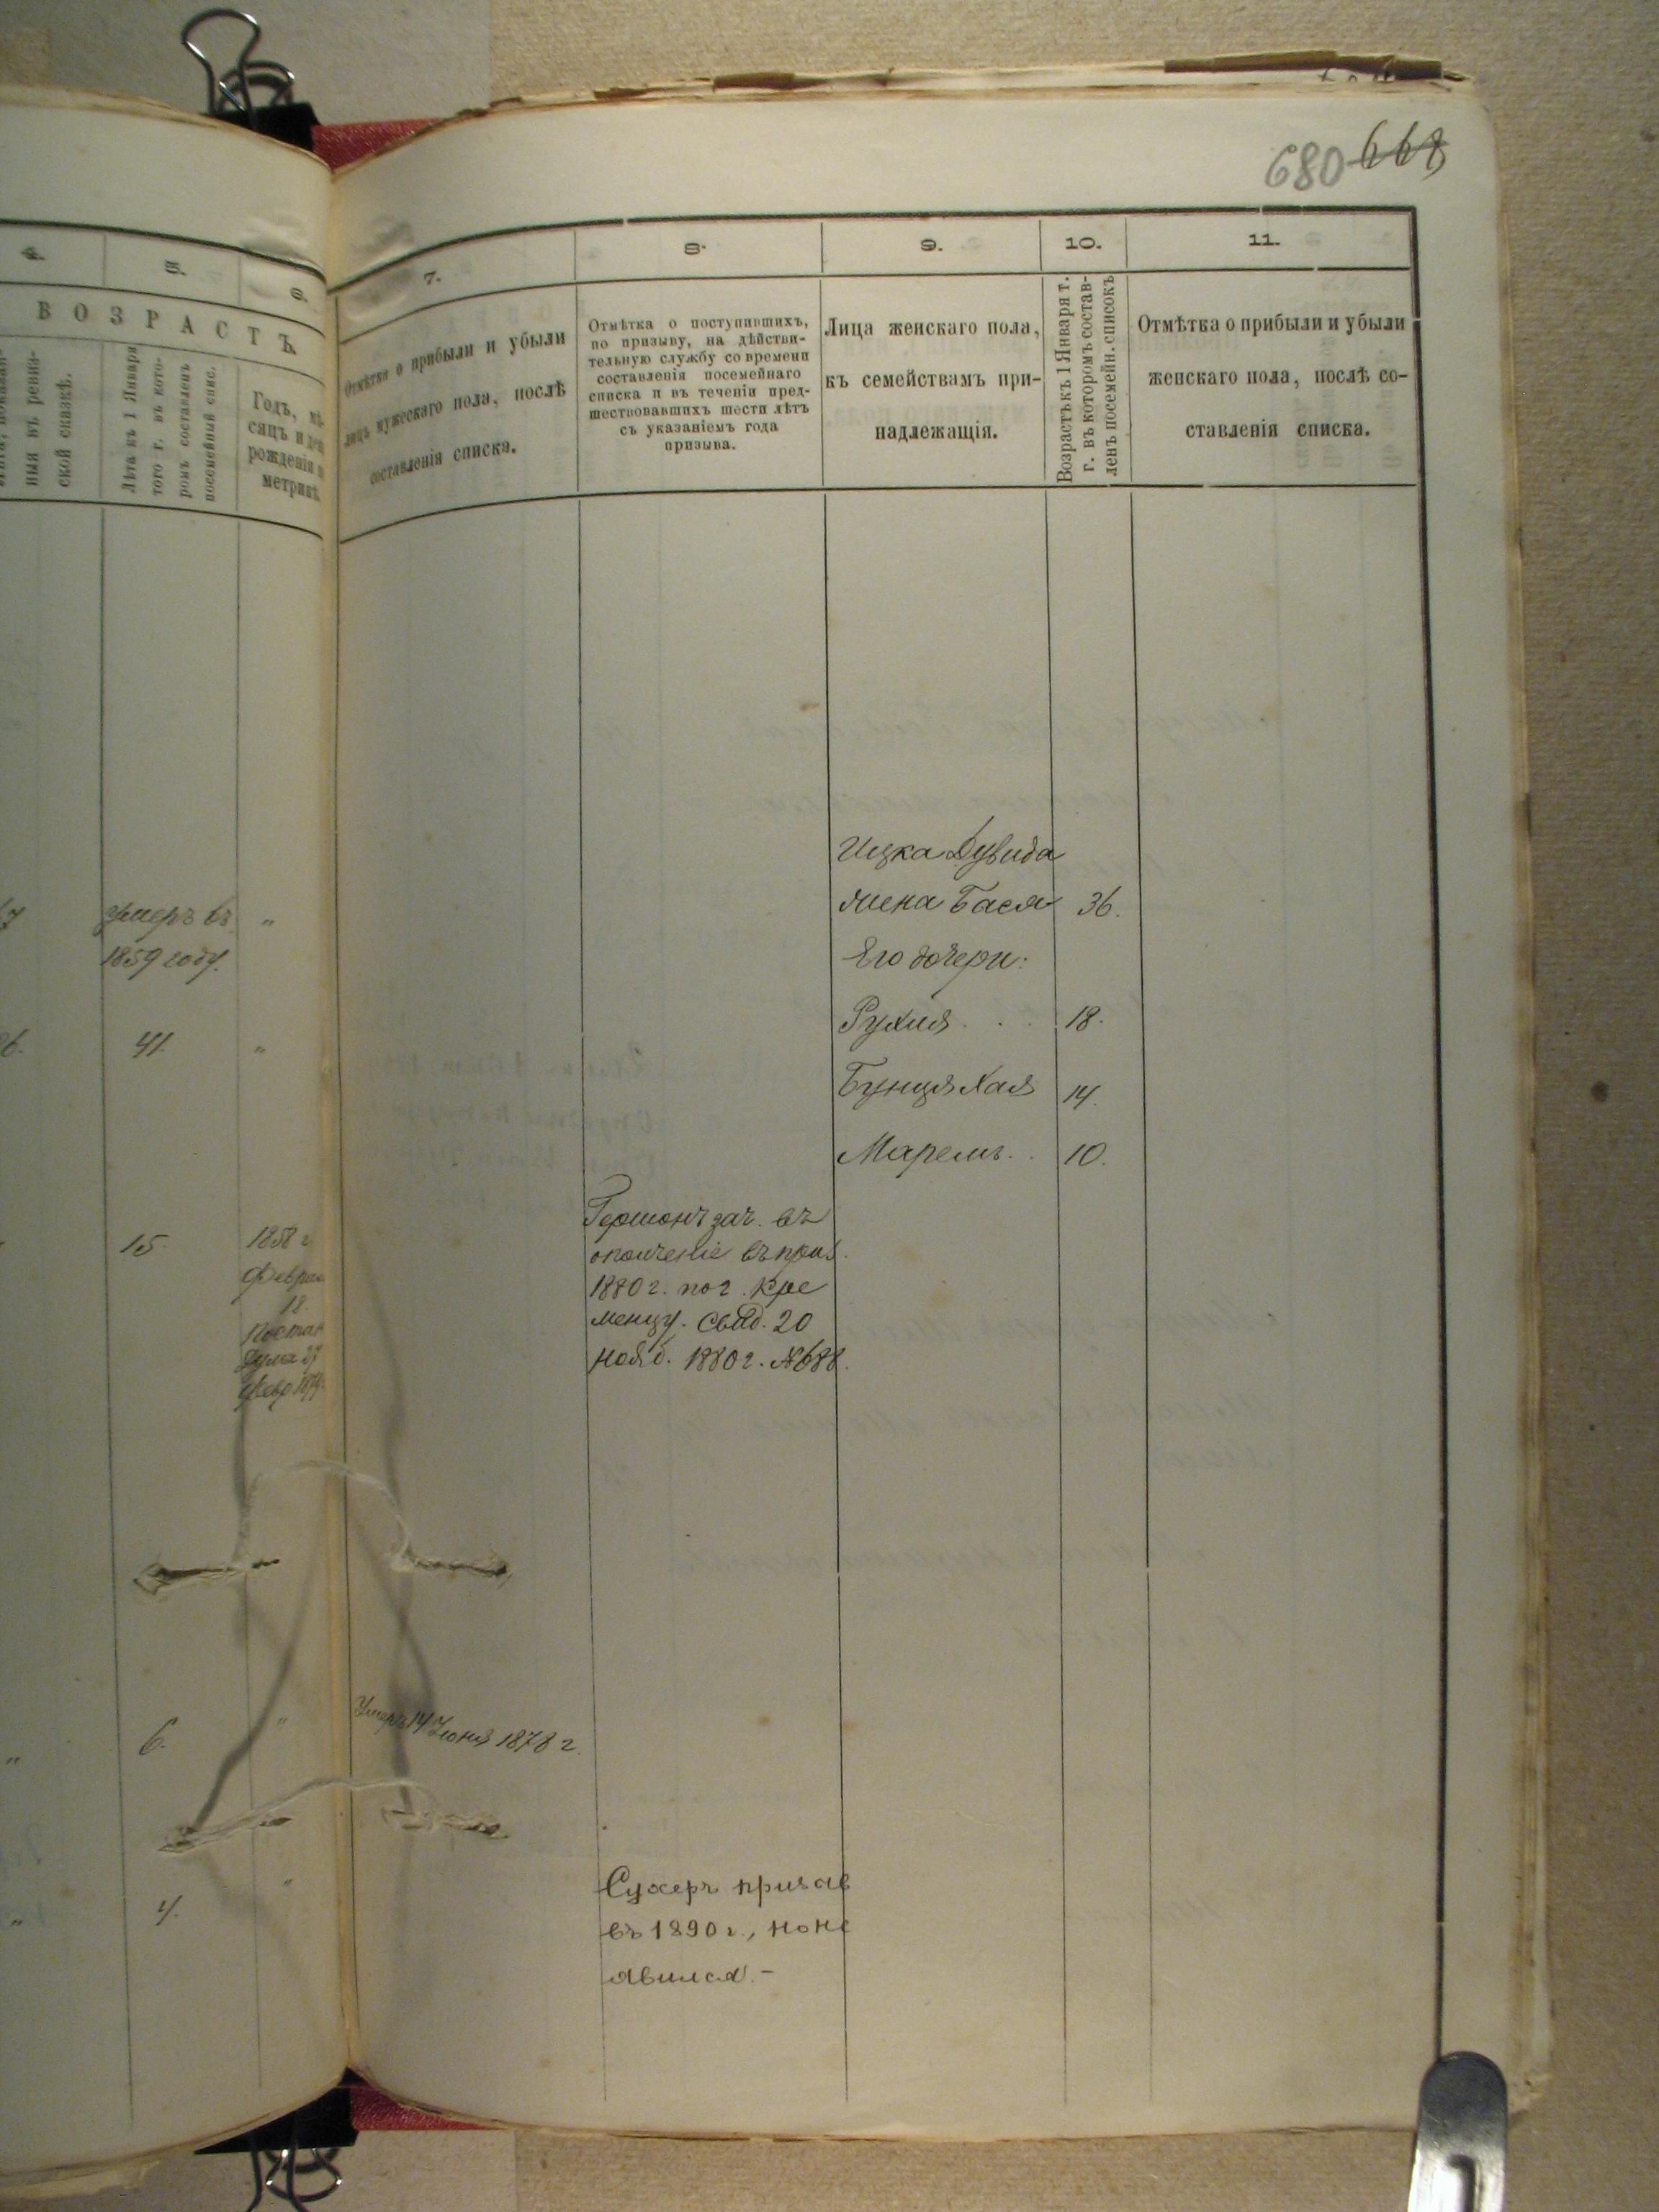 680 668
4.
5.
6.
ВОЗРАСТЪ.
ныя въ ревиз-
ской сказкѣ.
Лѣта къ 1 Января
того г. въ кото-
ромъ составленъ
посемейный спис.
Годъ, мѣ-
сяцъ и день
рожденія по
метрикѣ.
умеръ въ
1859 году.
"
41.
"
15.
1858 г
Феврал
18.
"
6.
"
"
4.
"
7.
8.
9.
10.
11.
Отмѣтка о прибыли и убыли
лицъ мужескаго пола, послѣ
составленія списка.
Отмѣтка о поступившихъ,
по призыву, на дѣйстви-
тельную службу со времени
составленія посемейнаго
списка и въ теченіи пред-
шествовавшихъ шести лѣтъ
съ указаніемъ года
призыва.
Лица женскаго пола,
къ семействамъ при-
надлежащія.
Возрастъ къ 1 Января т.
г. въ которомъ состав-
ленъ посемейн. списокъ
Отмѣтка о прибыли и убыли
женскаго пола, послѣ со-
ставленія списка.
Ицка Дувида
жена Бася 36.
Его дочери:
Рухля . . . 18.
Бунця Хая 14.
Маремъ . . 10.
Гершонъ зач. въ
ополченіе въ приз.
1880 г. по г. Кре
менцу. Свид. 20
Нояб. 1880 г. № 688.
Умеръ 14 Іюня 1878 г.
Сухеръ призав
въ 1890 г., но не
явился. -